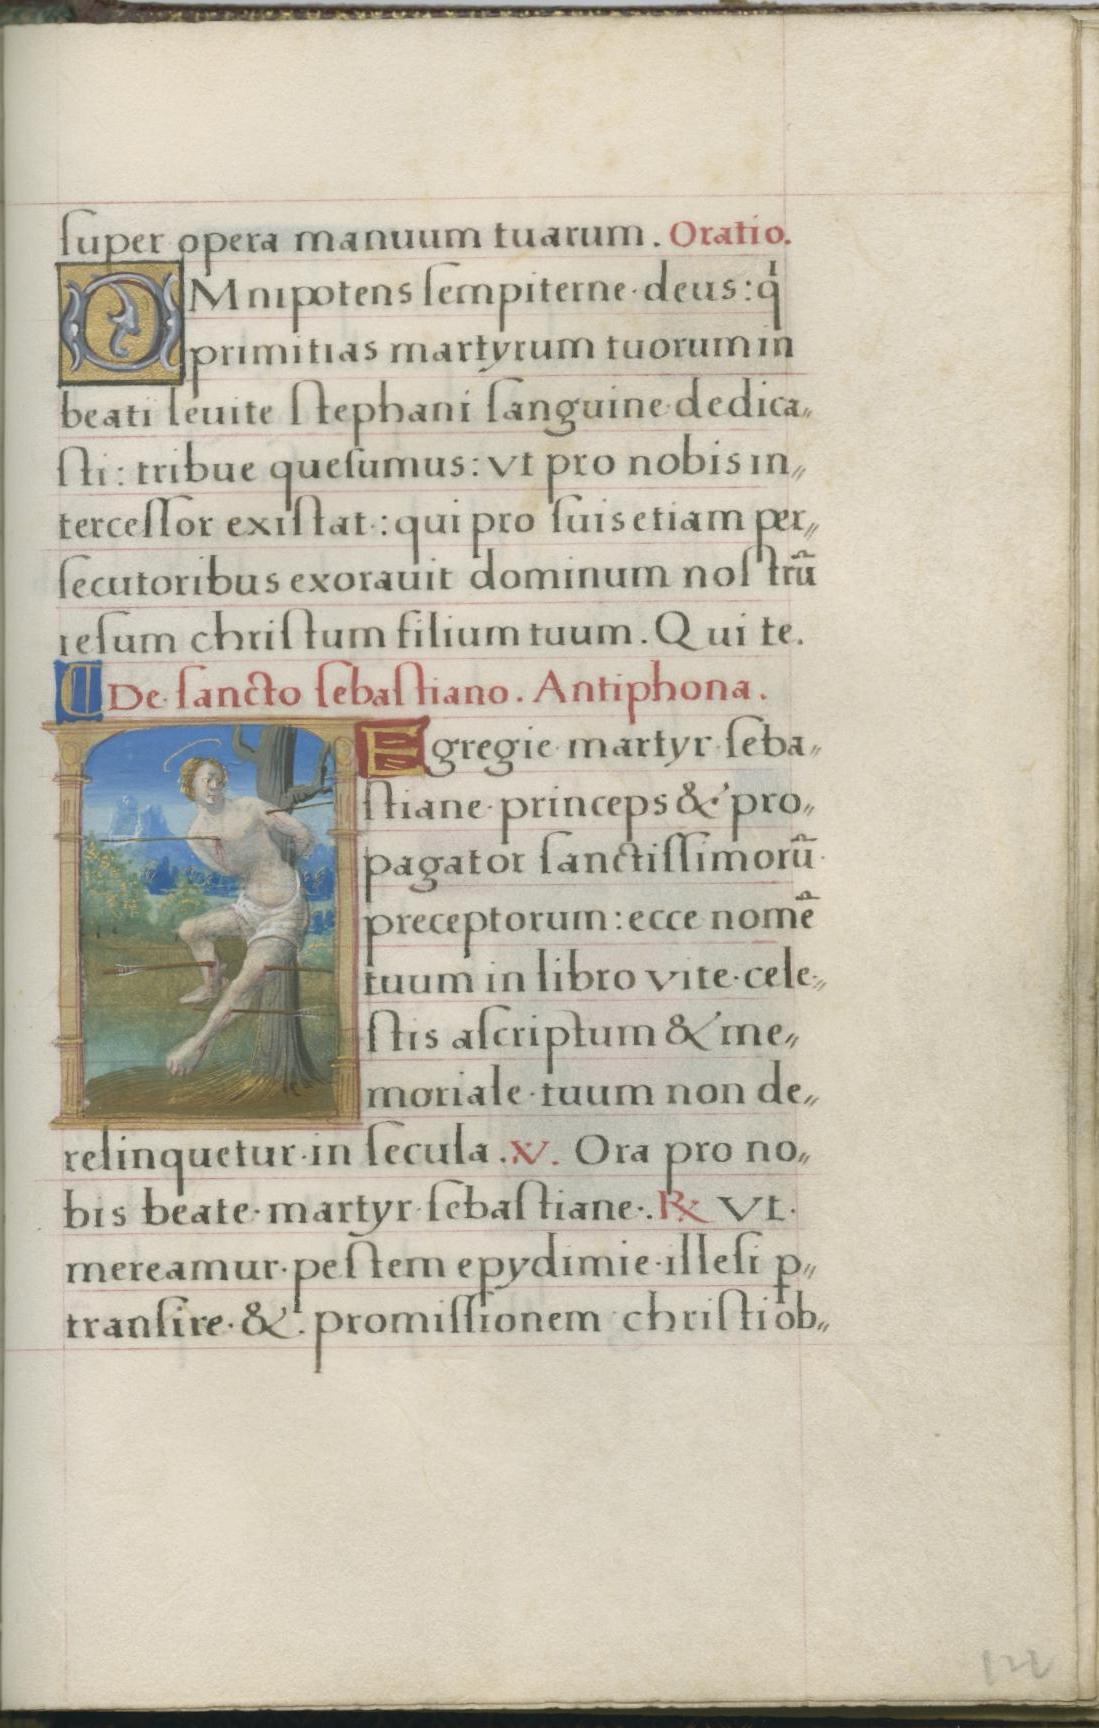 ſuper opera manuum tuarum. Oratio.
OMnipotens ſempiterne deus: qͥ
primitias martyrum tuorum in
beati leuite ſtephani ſanguine dedica„
ſti: tribue queſumus: vt pro nobis in„
terceſſor exiſtat: qui pro ſuis etiam per„
ſecutoribus exorauit dominum noſtrū
ieſum chriſtum filium tuum. Qui te.
De ſancto ſebaſtiano. Antiphona.
Egregie martyr ſeba„
ſtiane princeps & pro„
pagator ſanctiſſimorū
preceptorum: ecce nomē
tuum in libro vite cele„
ſtis aſcriptum & me„
moriale tuum non de„
relinquetur in ſecula. ℣. Ora pro no„
bis beate martyr ſebaſtiane. ℟ Vt
mereamur peſtem epydimie illeſi p„
tranſire & promiſſionem chriſti ob„
122